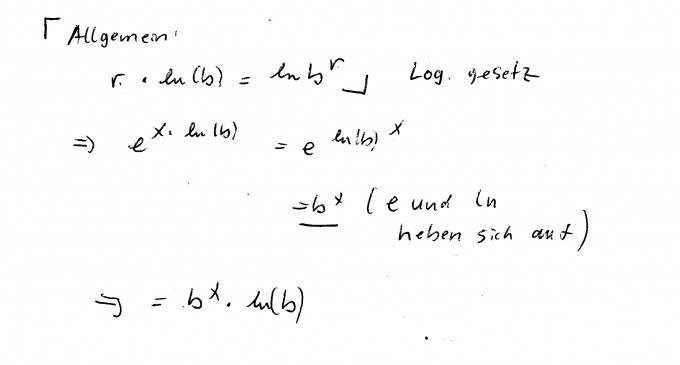 Γ Allgemein:
r · ln(b) = ln b^r ⌟ Log. gesetz
⇒ e^(x · ln(b)) = e^(ln(b)^x)
= b^x (e und ln
heben sich auf)
⇒ = b^x · ln(b)